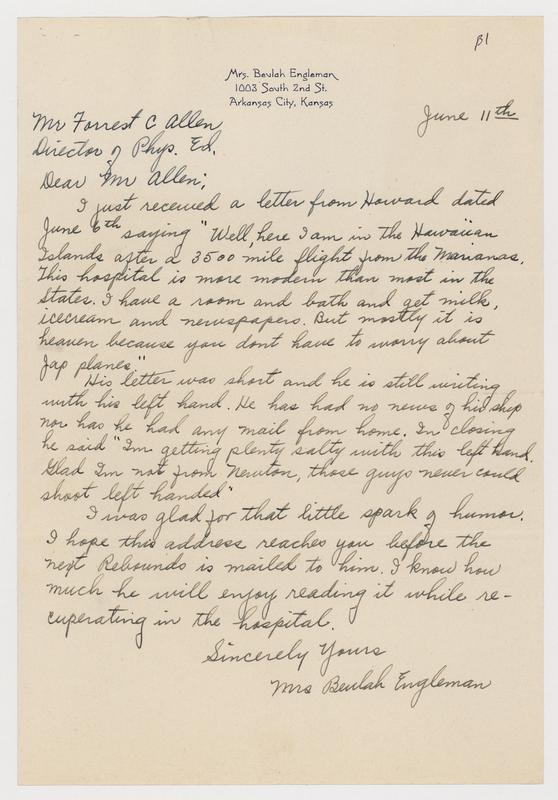 B1
Mrs. Beulah Engleman
1003 South 2nd St.
Arkansas City, Kansas
June 11th
Mr Forrest C Allen
Director of Phys. Ed.
Dear Mr Allen;
I just received a letter from Howard dated
June 6th saying "Well, here I am in the Hawaiian
Islands after a 3500 mile flight from the Marianas.
This hospital is more modern than most in the
States. I have a room and bath and get milk,
icecream and newspapers. But mostly it is
heaven because you dont have to worry about
Jap planes."
His letter was short and he is still writing
with his left hand. He has had no news of his ship
nor has he had any mail from home. In closing
he said "I'm getting plenty salty with this left hand.
Glad I'm not from Newton, those guys never could
shoot left handed"
I was glad for that little spark of humor.
I hope this address reaches you before the
next Rebounds is mailed to him. I know how
much he will enjoy reading it while re-
cuperating in the hospital.
Sincerely Yours
Mrs Beulah Engleman